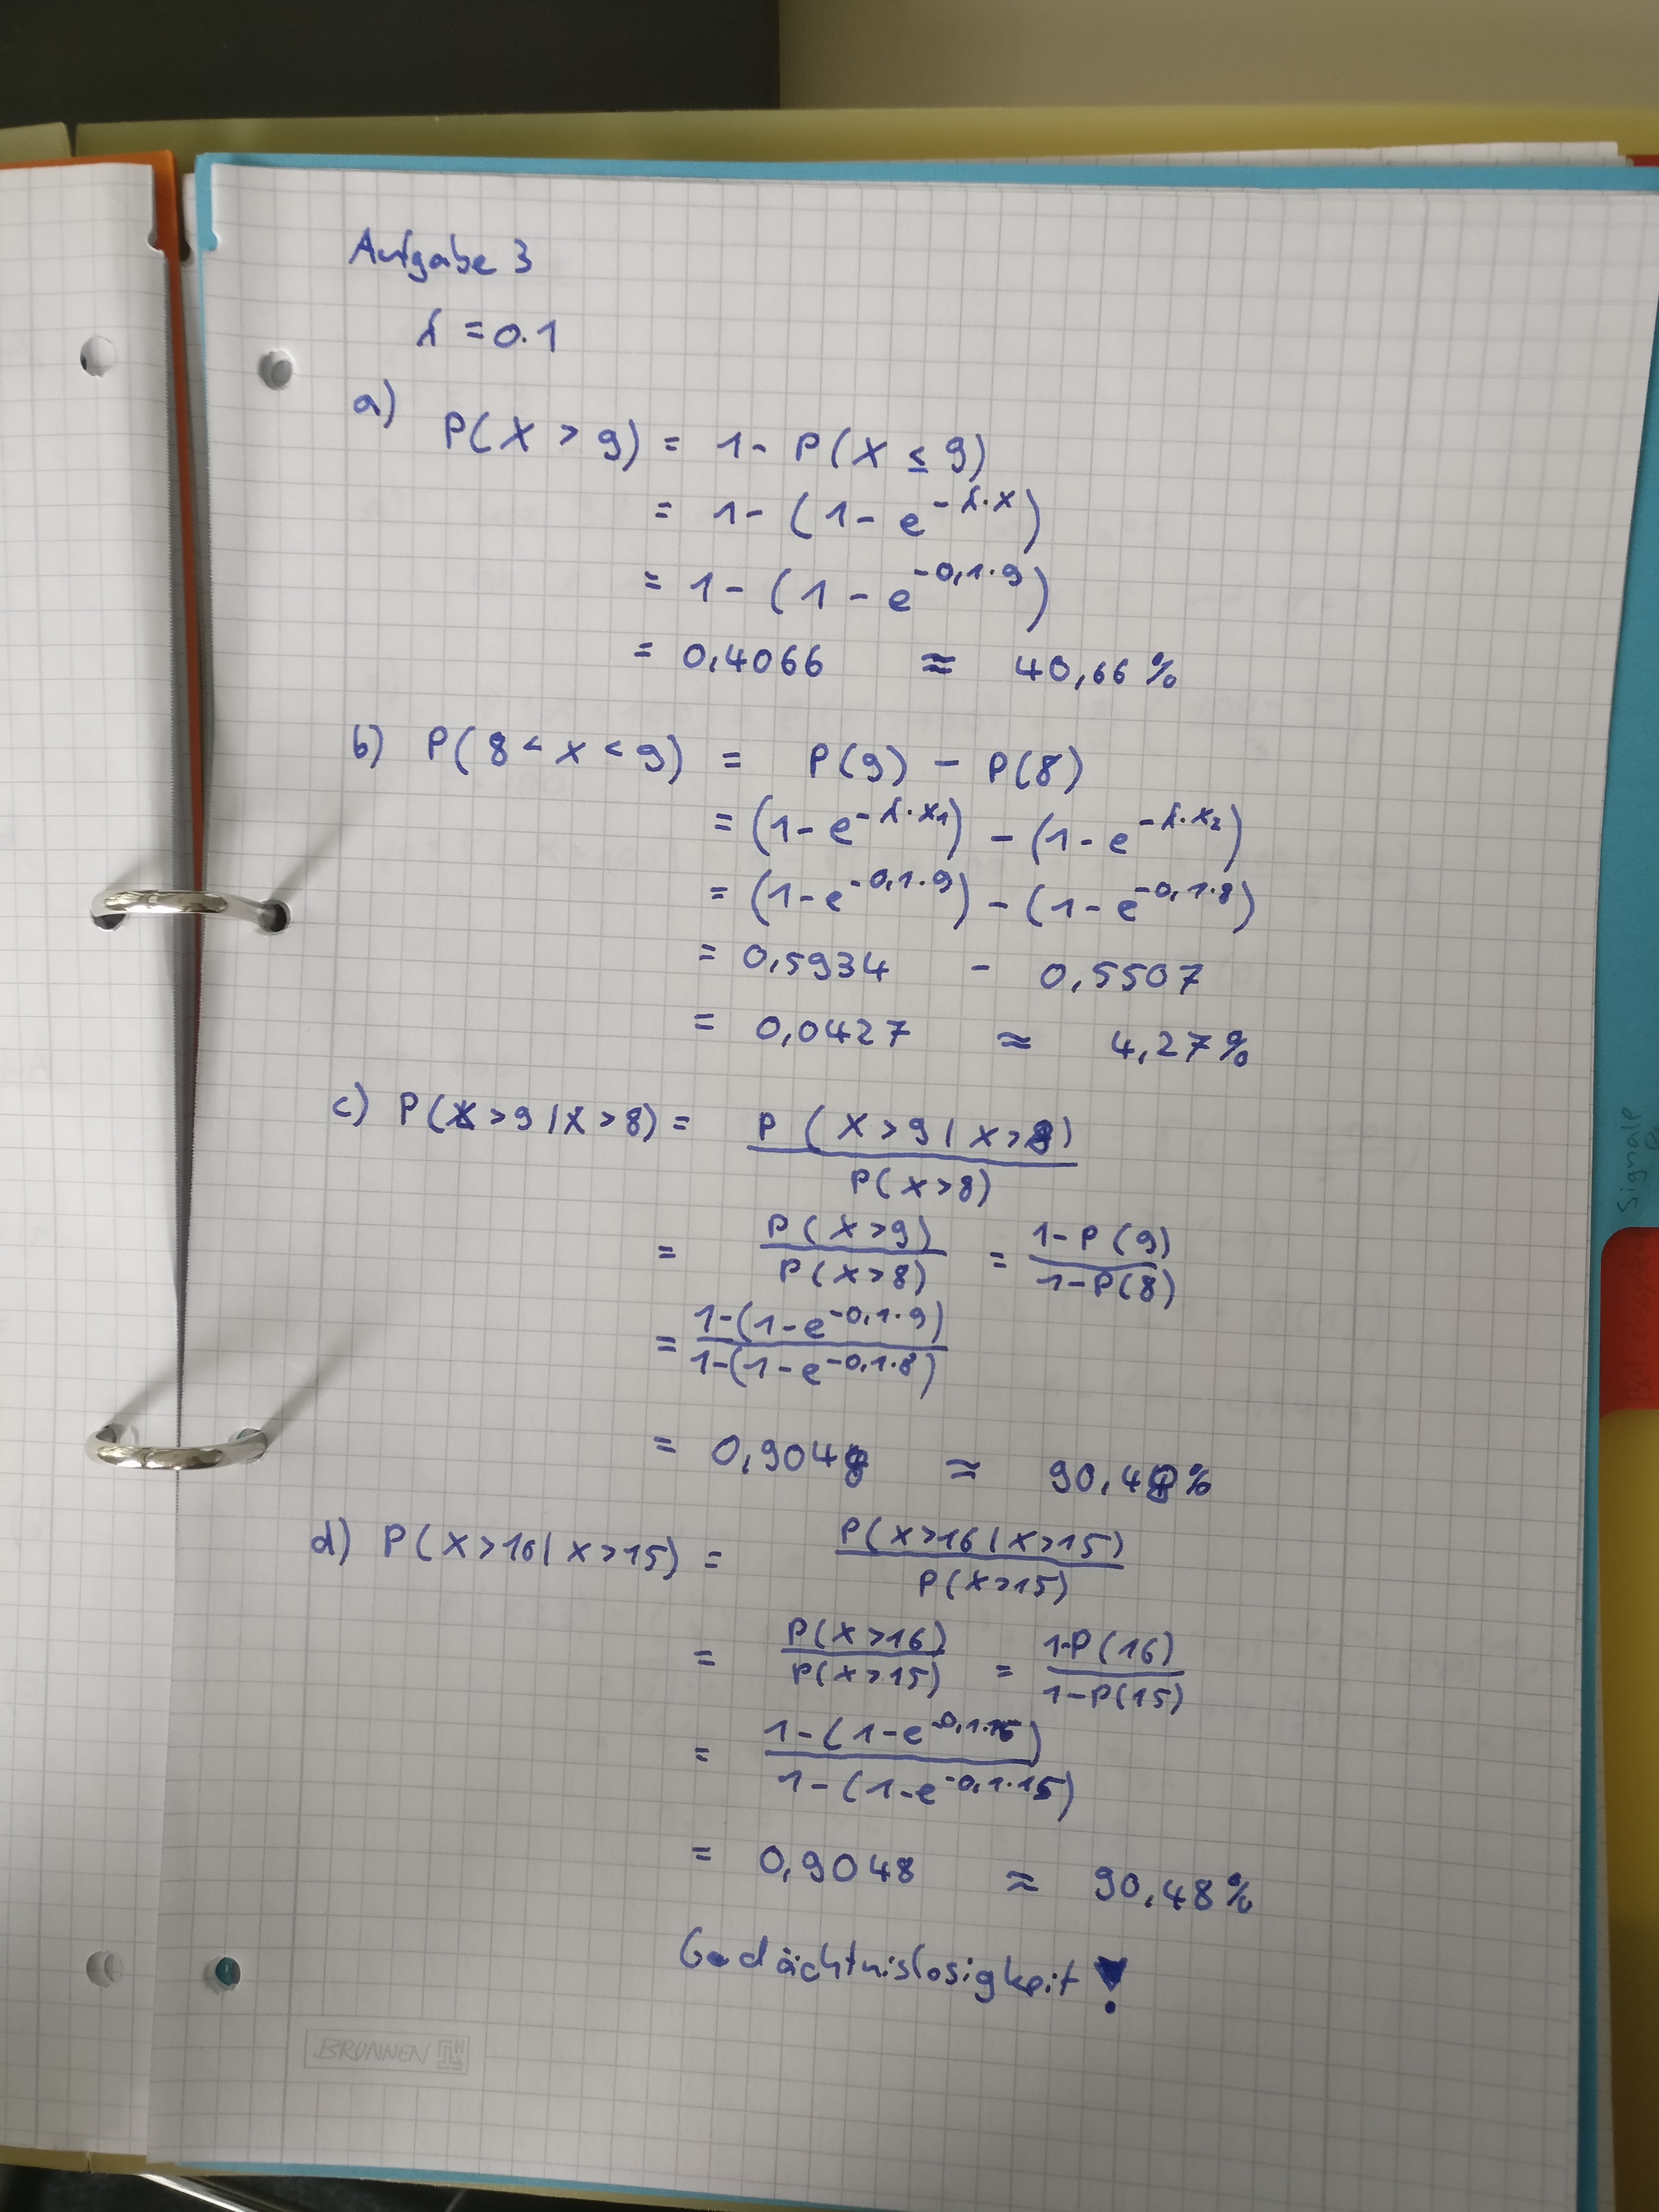 Aufgabe 3
λ = 0.1
a) P(X > 9) = 1 - P(X ≤ 9)
= 1 - (1 - e^-λ·x)
= 1 - (1 - e^-0,1·9)
= 0,4066 ≈ 40,66 %
b) P(8 < x < 9) = P(9) - P(8)
= (1 - e^-λ·x₁) - (1 - e^-λ·x₂)
= (1 - e^-0,1·9) - (1 - e^-0,1·8)
= 0,5934 - 0,5507
= 0,0427 ≈ 4,27 %
c) P(X > 9 | X > 8) = P(X > 9 | X > 8) / P(X > 8)
= P(X > 9) / P(X > 8) = 1 - P(9) / 1 - P(8)
= 1 - (1 - e^-0,1·9) / 1 - (1 - e^-0,1·8)
= 0,9048 ≈ 90,48 %
d) P(X > 16 | X > 15) = P(X > 16 | X > 15) / P(X > 15)
= P(X > 16) / P(X > 15) = 1 - P(16) / 1 - P(15)
= 1 - (1 - e^-0,1·16) / 1 - (1 - e^-0,1·15)
= 0,9048 ≈ 90,48 %
Gedächtnislosigkeit !
BRUNNEN
Signale